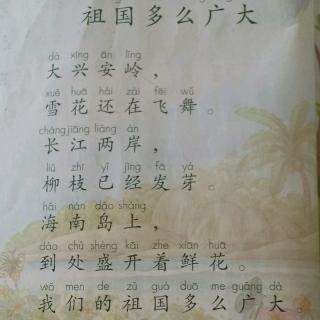 祖国多么广大
dà xīng ān lǐng
大兴安岭，
xuě huā hái zài fēi wǔ
雪花还在飞舞。
cháng jiāng liǎng àn
长江两岸，
liǔ zhī yǐ jīng fā yá
柳枝已经发芽。
hǎi nán dǎo shàng
海南岛上，
dào chù shèng kāi zhe xiān huā
到处盛开着鲜花。
wǒ men de zǔ guó duō me guǎng dà
我们的祖国多么广大。